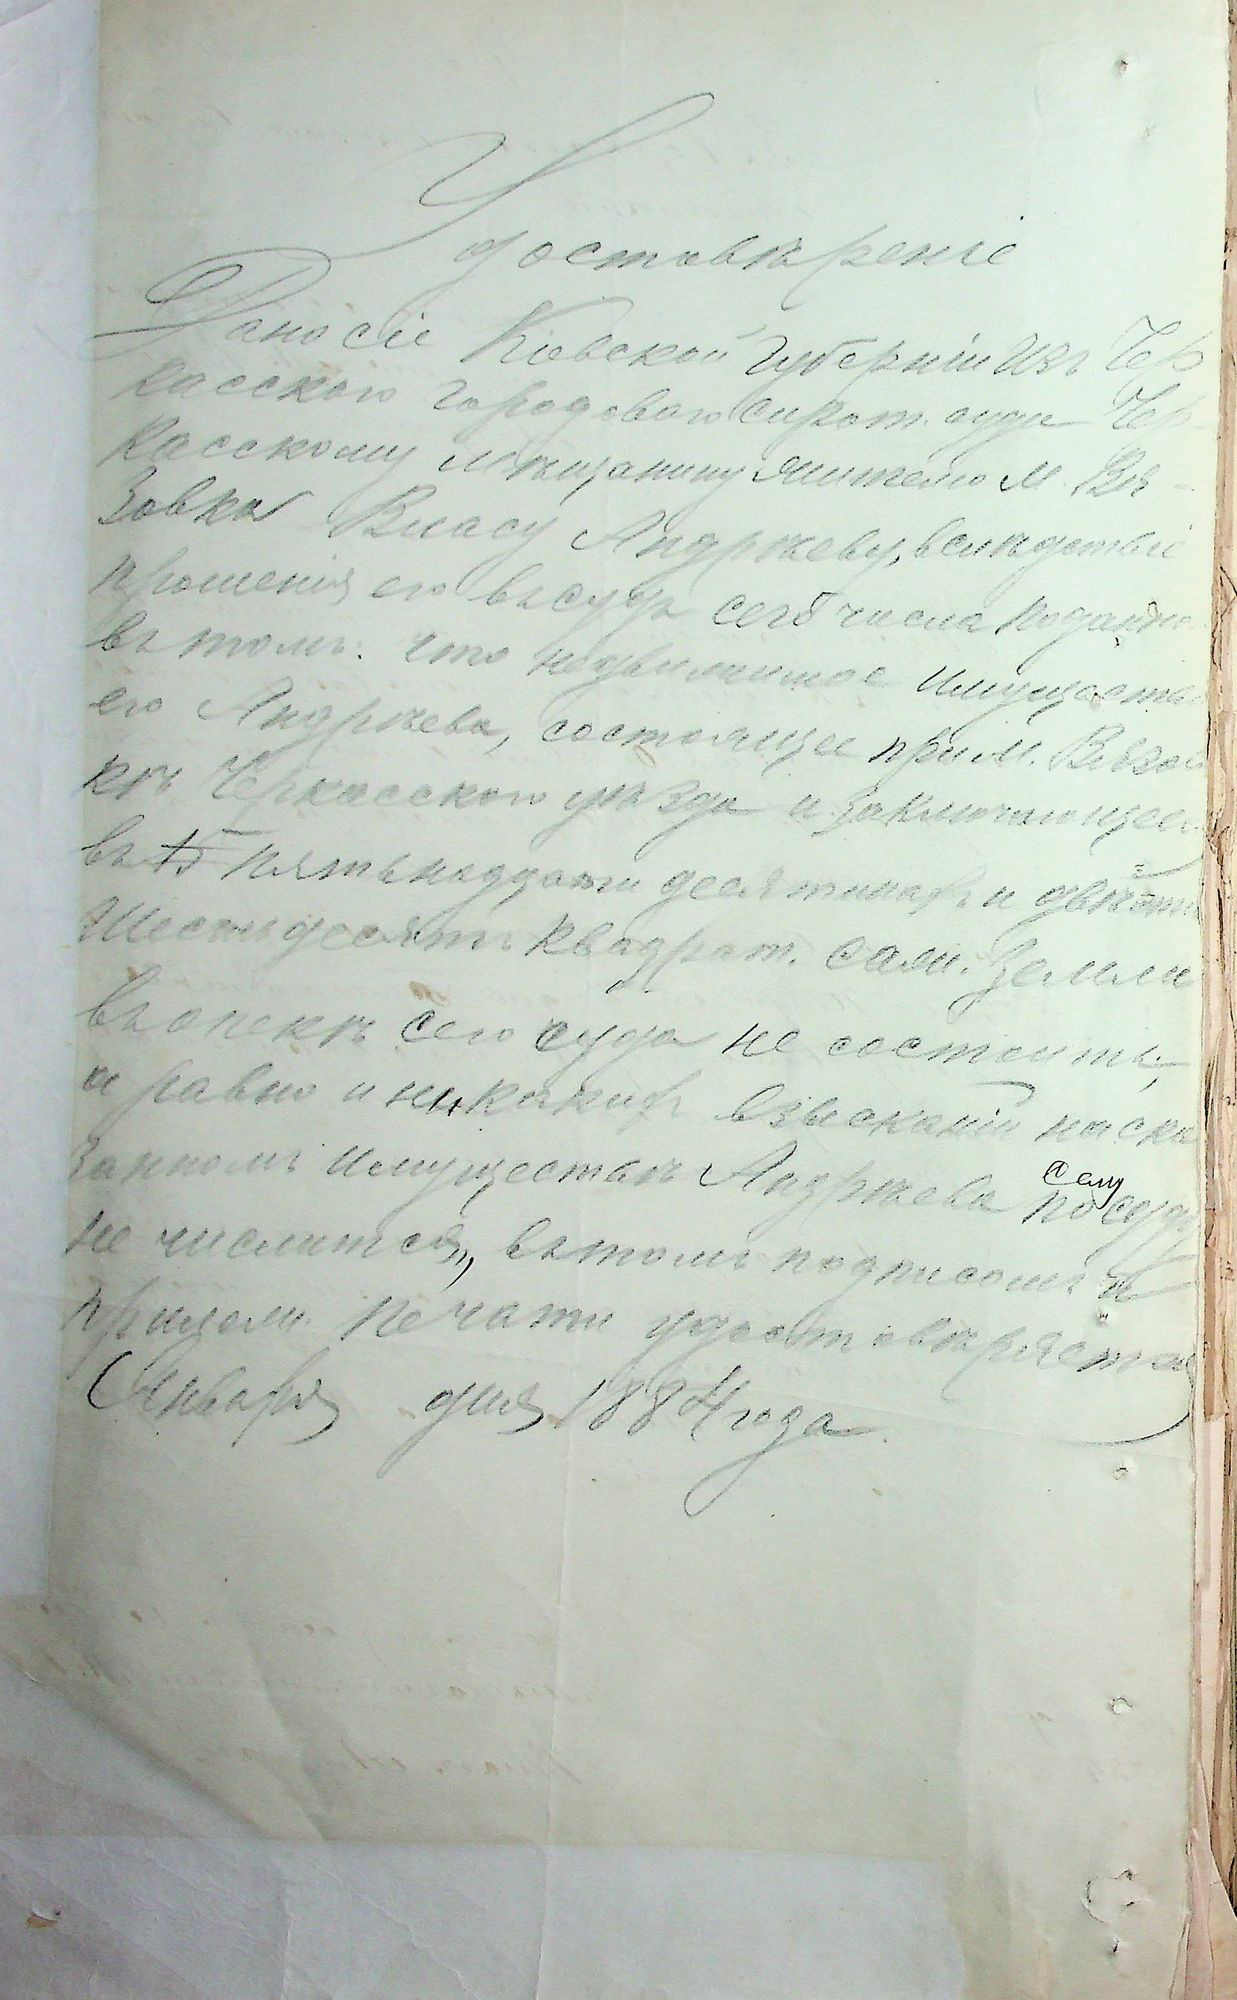 Удостовѣреніе
Дано сіе Кіевской губерніи изъ Чер
касского городоваго сирот. суда Чер-
касскому мѣщанину жителю м. Вя-
зовка Власу Андрѣеву, вслѣдствіе
прошенія его въ судъ сего числа поданно
въ томъ. что недвижимое имуществ
его Андрѣева, состоящее при м. Вязов
кѣ Черкасского уѣзда и заключающеес
въ 15 пятьнадцати десятинахъ и двѣсти
шестьдесятъ квадрат. саж. Земли
въ опекѣ сего суда не состоитъ,
а равно и никакихъ взысканій на ска
занномъ имуществѣ Андрѣева по сему суду
не числится, въ томъ подписомъ и
прилож. печати удостовѣряется
Января дня 1884 года.